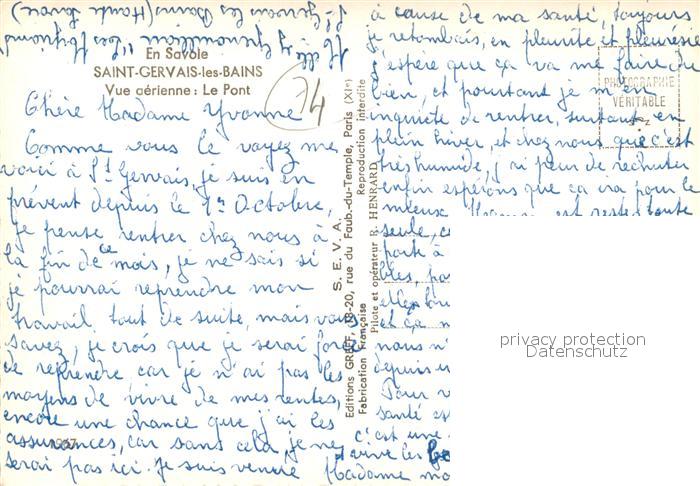 Melle Y. Grenouilleau "Les
St Gervais les Bains (Haute Savoie)
En Savoie
SAINT-GERVAIS-les-BAINS
Vue aérienne: Le Pont
74
Chère Madame Yvonne
Comme vous le voyez me
voici à St Gervais, je suis en
prévent depuis le 1er Octobre,
je pense rentrer chez nous à
la fin de ce mois, je ne sais si
je pourrai reprendre mon
travail tout de suite, mais vous
savez, je crois que je serai forcé
de reprendre, car je n'ai pas les
moyens de vivre de mes rentes,
encore une chance que j'ai les
assurances, car sans cela je ne
serai pas ici. Je suis venue
à cause de ma santé, toujours
je retombais, en pleurite et pleurésie
j'espère que ça va me faire du
bien, et pourtant je m'en
inquiète de rentrer, surtout en
plein hiver, et chez nous que c'est
très humide, j'ai peur de rechuter
enfin espérons que ça ira pour le
mieux. est restée toute
seule,
park à
bles, pa
et ça m
nous n'
depuis
Pour v
santé es
c'est une
arrive les
Madame mo
S. E. V. A.
Editions GREFF, 18-20, rue du Faub.-du-Temple, Paris (XIe)
Fabrication Française Reproduction interdite
Pilote et opérateur R. HENRARD
PHOTOGRAPHIE
VÉRITABLE
privacy protection
Datenschutz